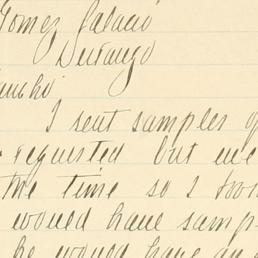 Gomez Palacio
Durango
I sent samples
requested but we
the time so I
would have samp
he would have an